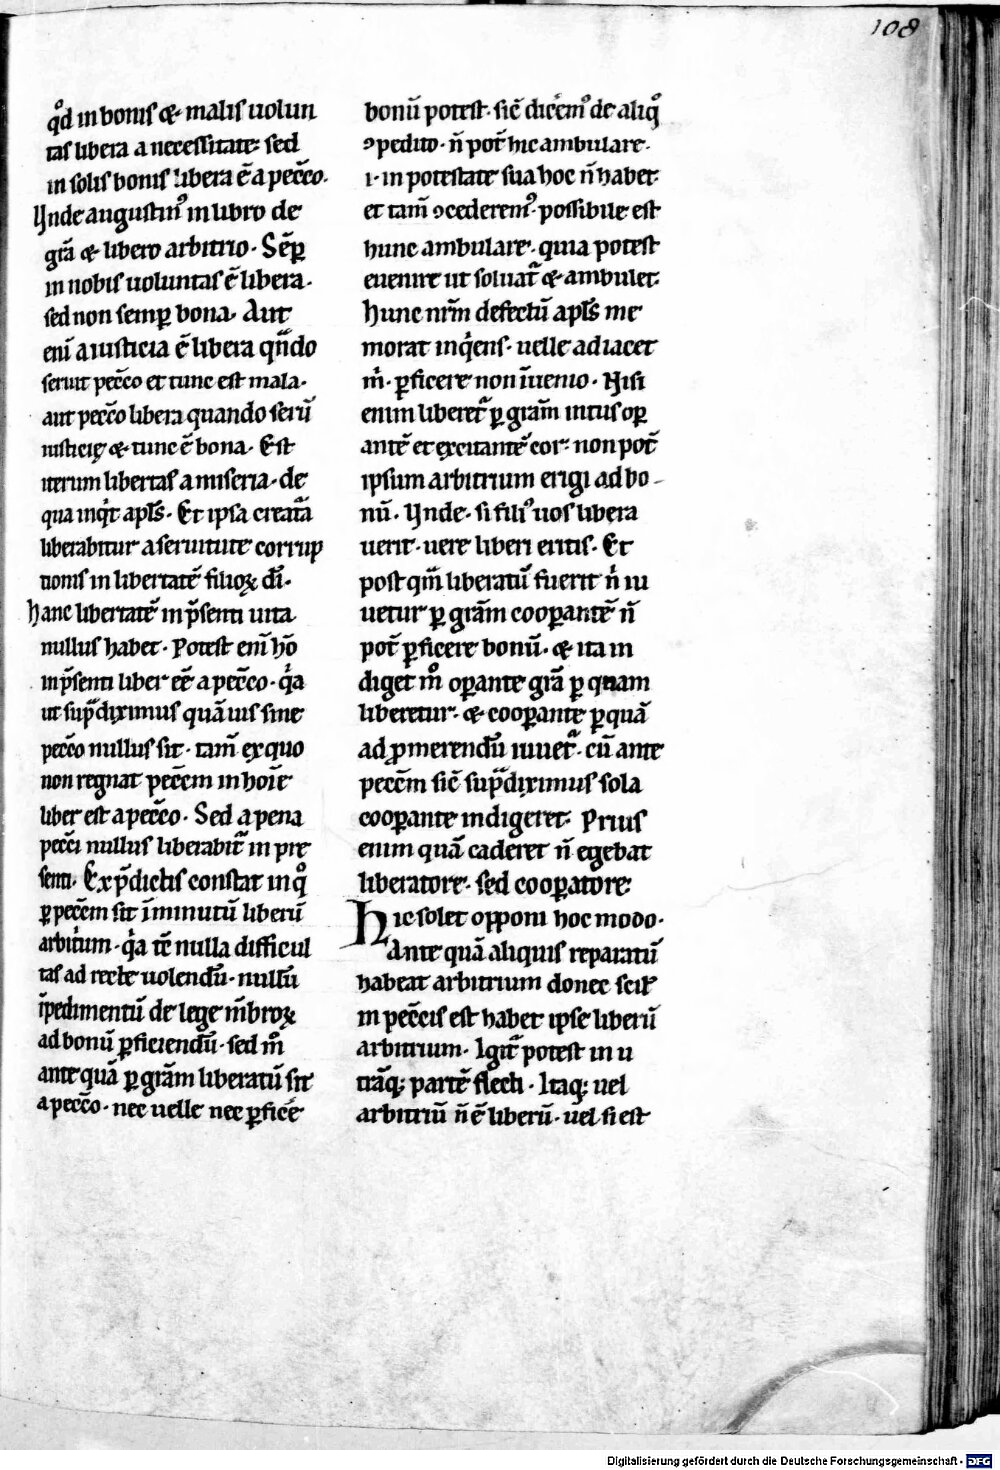 108
qͦd in bonis & malis uolun
tas libera a necessitate· sed
in solis bonis libera ē a pecc̄o·
Vnde augustin᷒ in libro de
gr̄a & libero arbitrio· Sēp̱
in nobis uoluntas ē libera·
sed non semp̱ bona· Aut
eni̅ a iusticia ē libera qn̄do
seruit pecc̄o et tunc est mala·
aut pecc̄o libera quando serui̅
iusticię & tunc ē bona· Est
iterum libertas a miseria· de
qua inqͥt apl̄s· Et ipsa creatᷓa
liberabitur a seruitute corrup
tionis in libertatē filioꝝ dī·
Hanc libertatē in p̄senti uita
nullus habet· Potest eni̅ hō
in p̄senti liber ēē a pecc̄o· qͥa
ut sup̱ᷓdiximus quā uis sine
pecc̄o nullus sit· tam̄ ex quo
non regnat pecc̄m in hoīe
liber est a pecc̄o· Sed a pena
pecc̄i nullus liberabitᷓ in pre
senti· Ex p̄dictis constat in qͦ
ꝑ pecc̄m sit īminutū liberū
arbitͥum· qͥa tē nulla difficul
tas ad recte uolendū· nullū
īpedimentū de lege m̄broꝝ
ad bonū ꝑficiendū· sed mͦ
ante quā ꝑ gr̄am liberatū sit
a pecc̄o· nec uelle nec ꝑfice̅
bonū potest· sic̄ dicēm᷒ de aliqͦ
ꝯpedito· n̄ pot̄ hic ambulare·
i· in potestate sua hoc n̄ habet·
et tam̄ ꝯcederem᷒· possibile est
hunc ambulare· quia potest
euenire ut soluatᷓ & ambulet·
Hunc nr̄m defectū apl̄s me
morat inqͥens· uelle adiacet
mͥ· ꝑficere non īuenio· Nisi
enim liberetᷓ ꝑ gr̄am intus oꝑ
antē et excitantē cor· non pot̄
ipsum arbitrium erigi ad bo-
nū· Vnde· si fili᷒ uos libera
uerit· uere liberi eritis· Et
post qm̄ liberatū fuerit nͥ iu
uetur ꝑ gr̄am cooꝑantē n̄
pot̄ ꝑficere bonū· & ita in
diget mͦ oꝑante gr̄a ꝑ quam
liberetur· & cooꝑante ꝑ quā
ad ꝓmerendū iuuetᷓ· cū ante
pecc̄m sic̄ sup̱ᷓdiximus sola
cooꝑante indigeret· Prius
enim quā caderet n̄ egebat
liberatore· sed cooꝑatore·
Hic solet opponi hoc modo·
Ante quā aliquis reparatū
habeat arbitrium donec scil'
in pecc̄is est habet ipse liberū
arbitrium· Igitᷓ potest in u
trāq; partē flecti· Itaq; uel
arbitriū n̄ ē liberū· uel si est
Digitalisierung gefördert durch die Deutsche Forschungsgemeinschaft - DFG